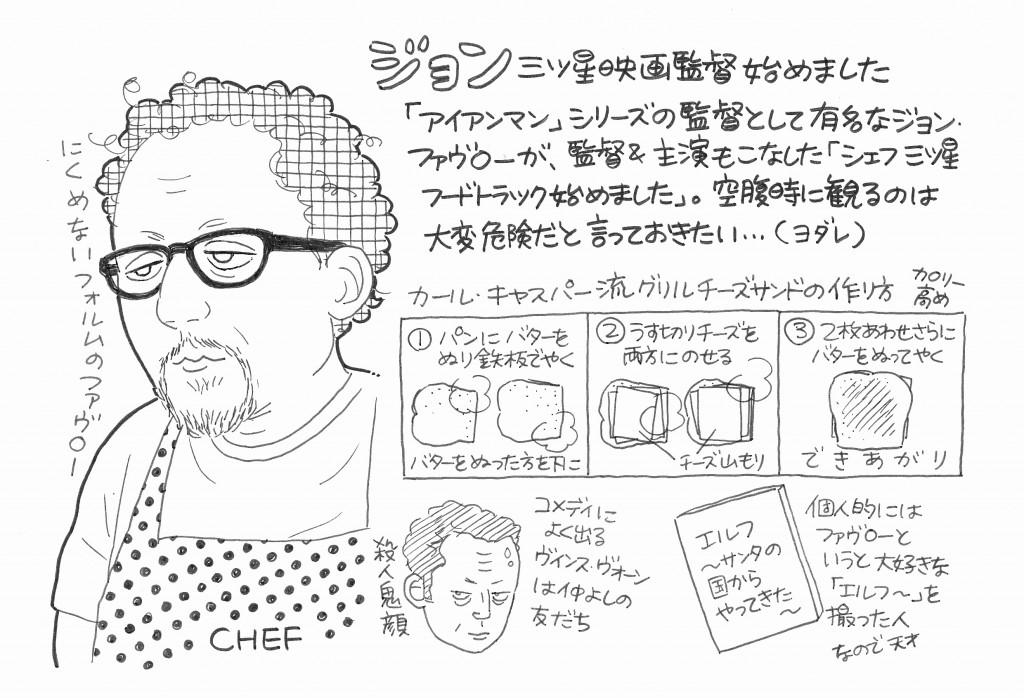 ジョン 三ツ星映画監督始めました
「アイアンマン」シリーズの監督として有名なジョン・
ファヴローが、監督&主演もこなした「シェフ 三ツ星
フードトラック始めました」。空腹時に観るのは
大変危険だと言っておきたい…(ヨダレ)
にくめないフォルムのファヴロー
カール・キャスパー流グリルチーズサンドの作り方
カロリー
高め
① パンにバターを
ぬり鉄板でやく
バターをぬった方を下に
② うす切りチーズを
両方にのせる
チーズ山もり
③ 2枚あわせさらに
バターをぬってやく
できあがり
CHEF
殺人鬼顔
コメディに
よく出る
ヴィンス・ヴォーン
は仲よしの
友だち
エルフ
〜サンタの
国から
やってきた
〜
個人的には
ファヴローと
いうと大好きな
「エルフ〜」を
撮った人
なので天才